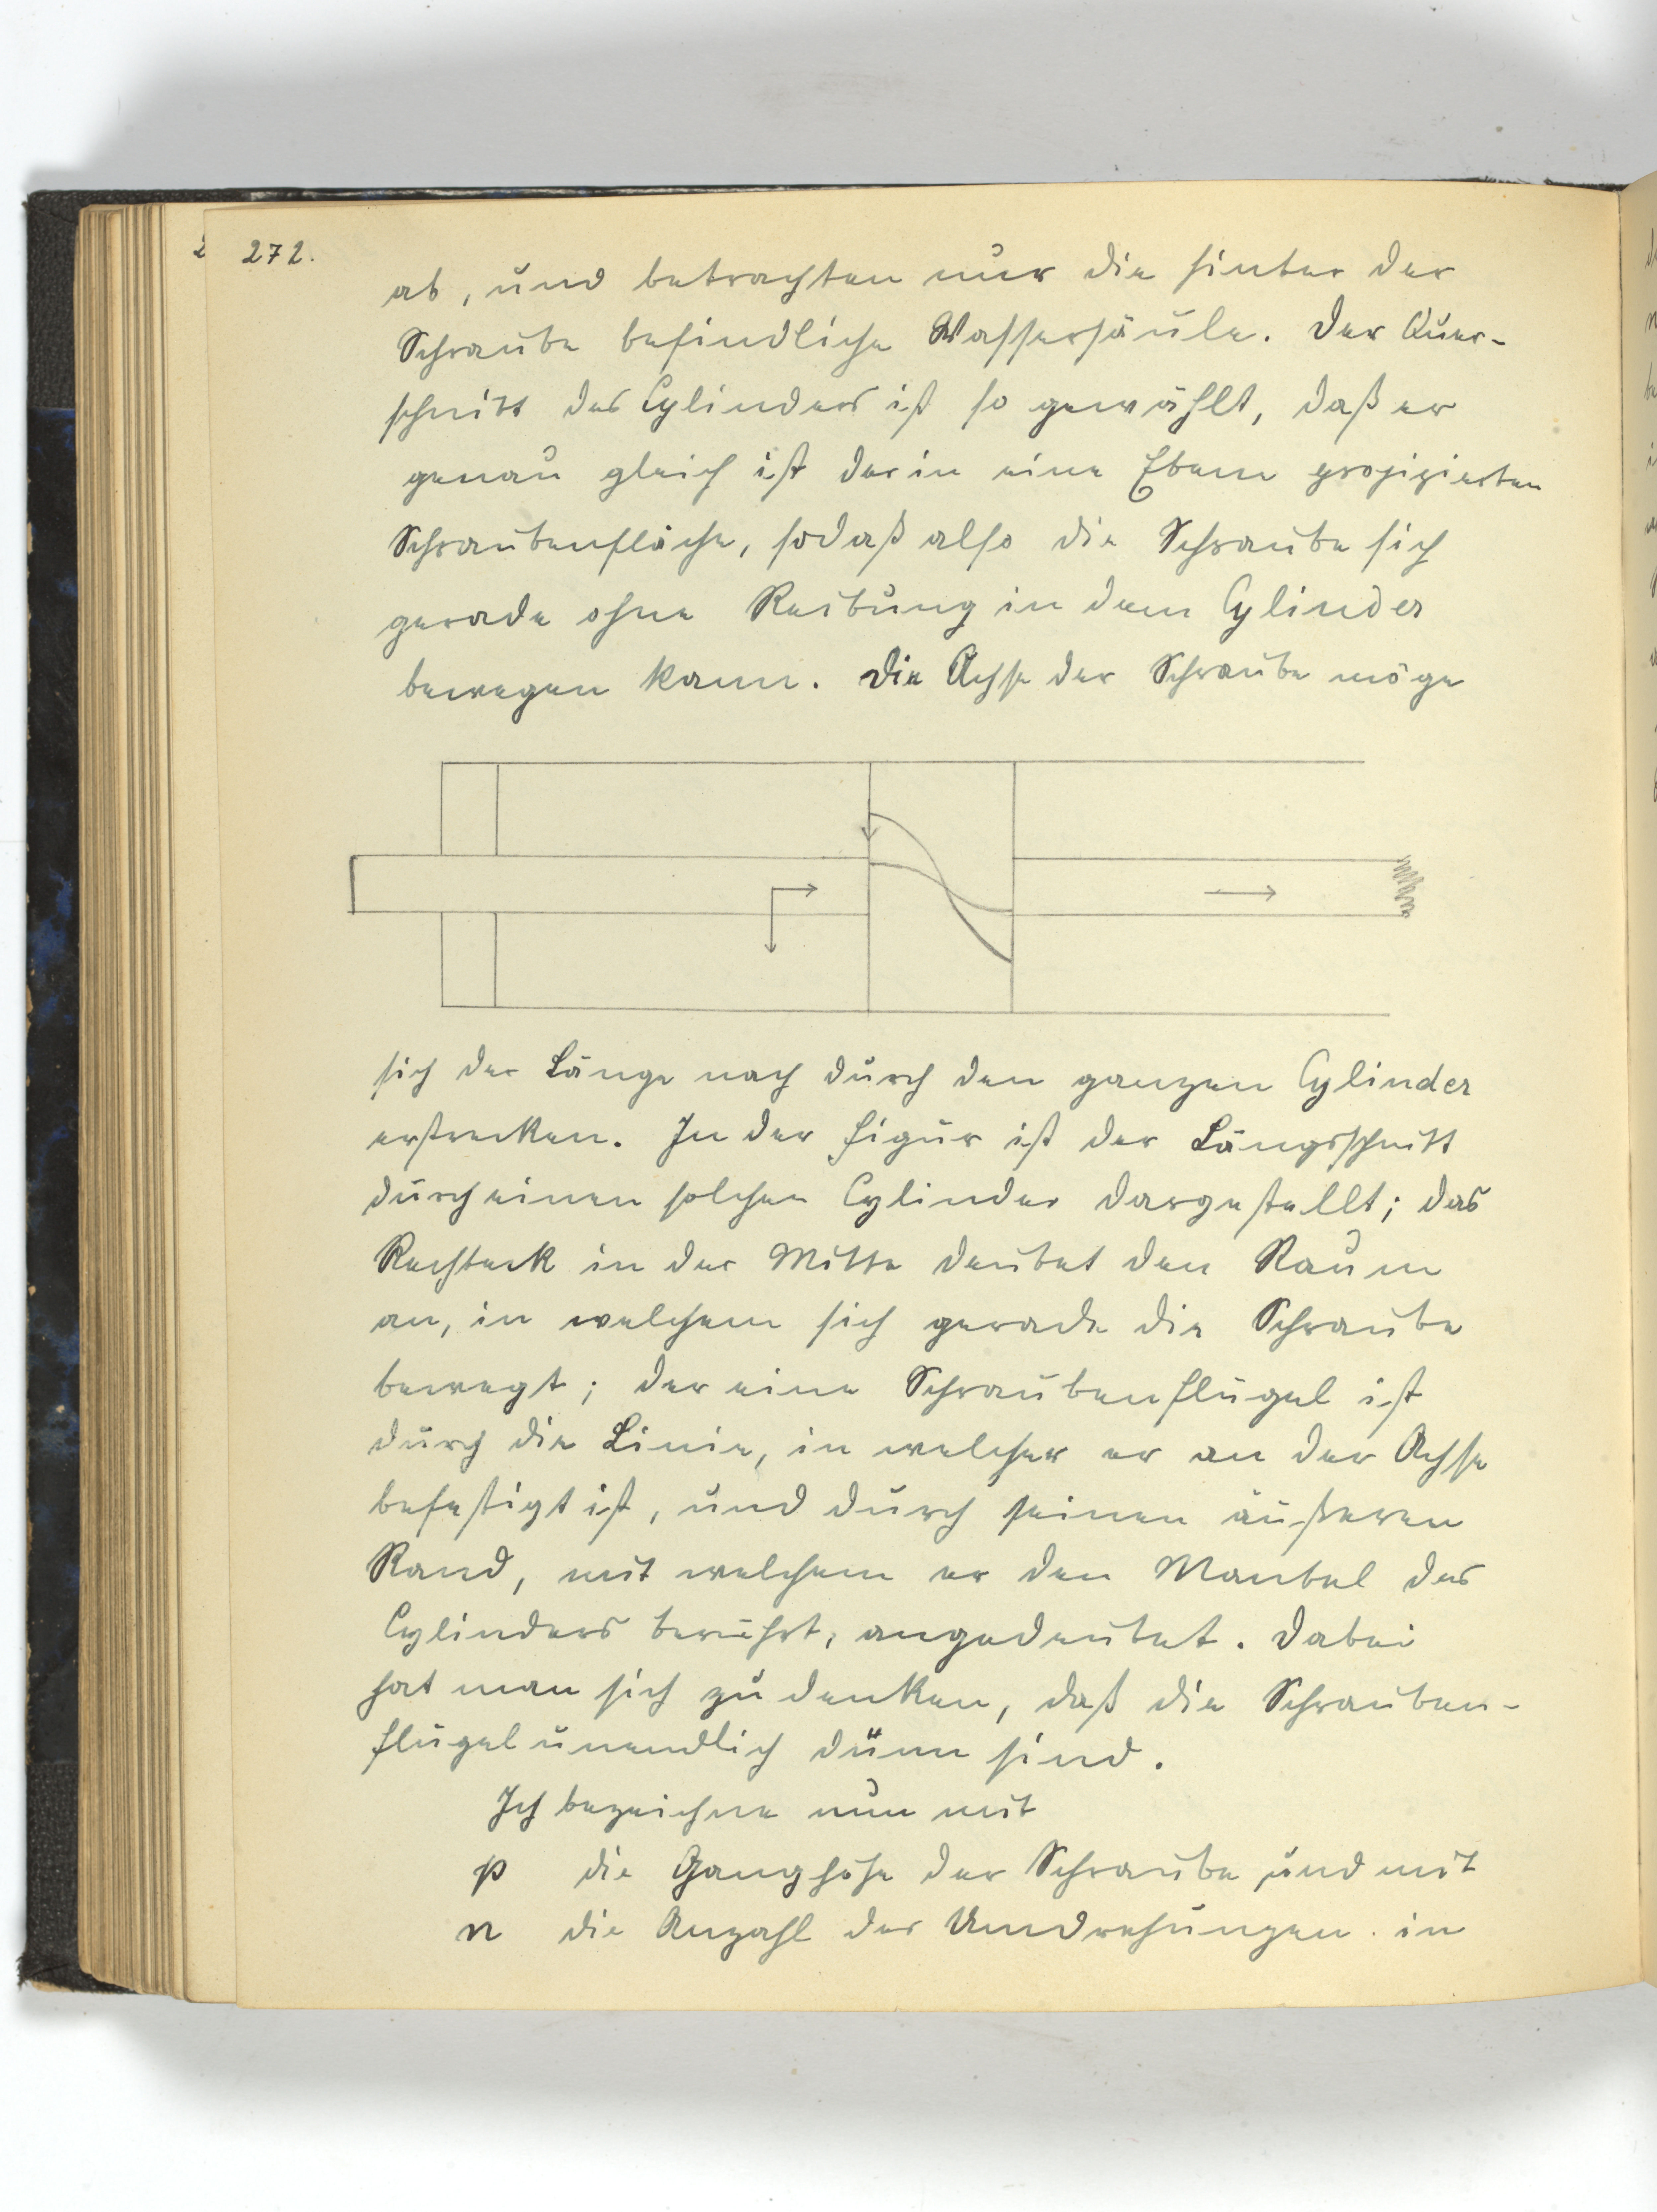 272.
ab, und betrachten nur die hinter der
Schraube befindliche Wassersäule. Der Quer-
schnitt des Cylinders ist so gewählt, daß er
genau gleich ist der in eine Ebene projizierten
Schraubenfläche, sodaß also die Schraube sich
gerade ohne Reibung in dem Cylinder
bewegen kann. Die Achse der Schraube möge
sich der Länge nach durch den ganzen Cylinder
erstrecken. In der Figur ist der Längsschnitt
durch einen solchen Cylinder dargestellt; das
Rechteck in der Mitte deutet den Raum
an, in welchem sich gerade die Schraube
bewegt; der eine Schraubenflügel ist
durch die Linie, in welcher er an der Achse
befestigt ist, und durch seinen äußeren
Rand, mit welchem er den Mantel des
Cylinders berührt, angedeutet. Dabei
hat man sich zu denken, daß die Schrauben-
flügel unendlich dünn sind.
Ich bezeichne nun mit
p die Ganghöhe der Schraube und mit
n die Anzahl der Umdrehungen in